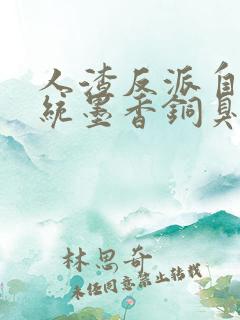 人渣反派自
統墨香銅臭
林思奇
未经同意禁止转载